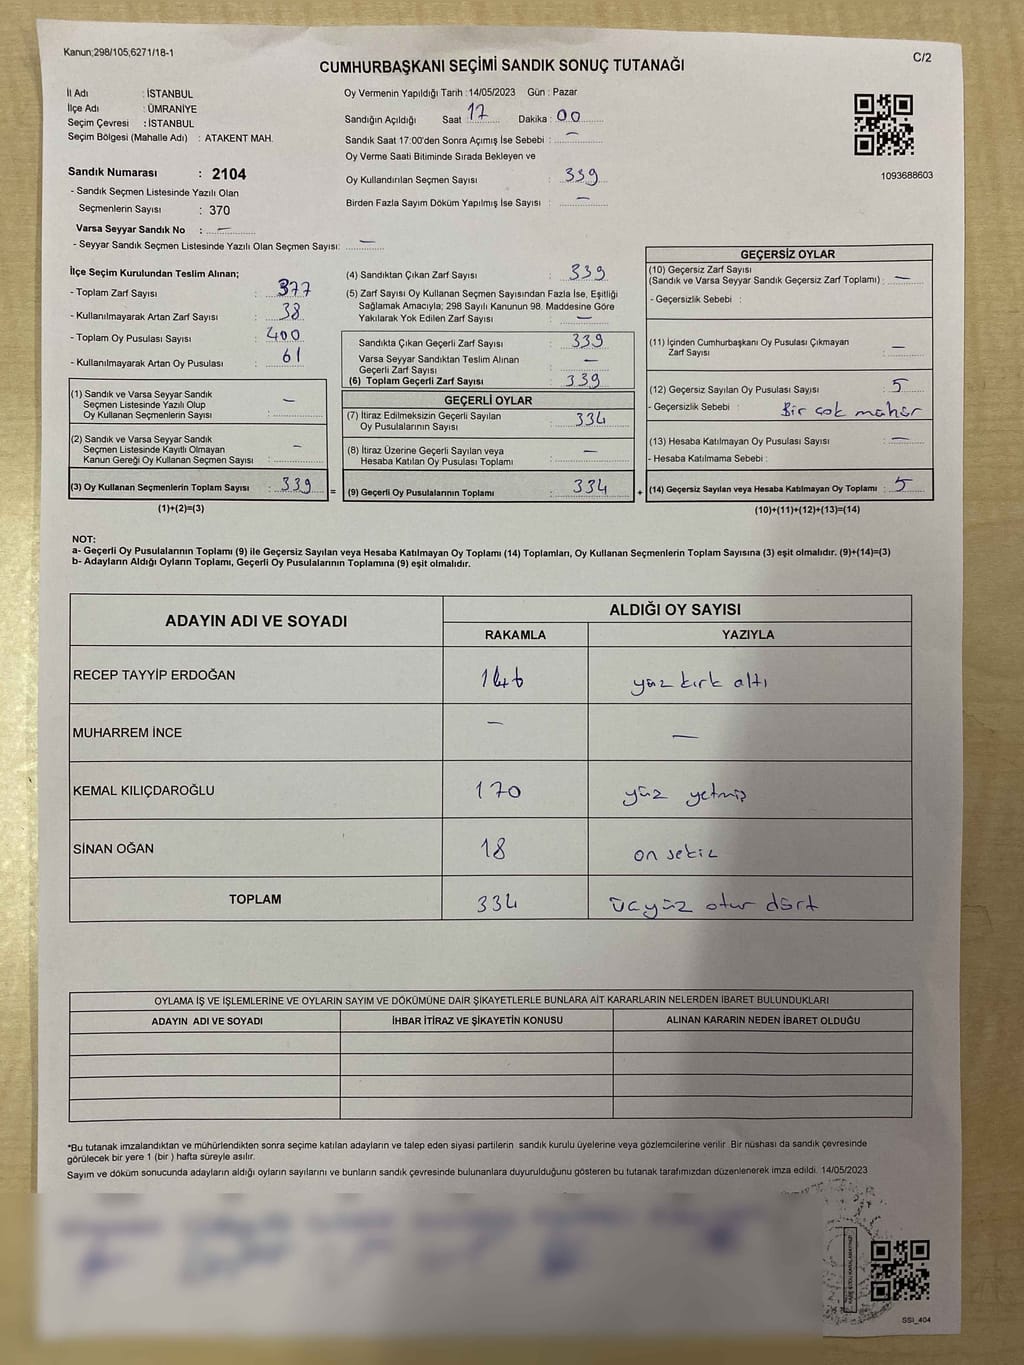 Kanun;298/105,6271/18-1
C/2
CUMHURBAŞKANI SEÇİMİ SANDIK SONUÇ TUTANAĞI
İl Adı : İSTANBUL
İlçe Adı : ÜMRANİYE
Seçim Çevresi : İSTANBUL
Seçim Bölgesi (Mahalle Adı) : ATAKENT MAH.
Oy Vermenin Yapıldığı Tarih :14/05/2023 Gün : Pazar
Sandığın Açıldığı Saat : 17 Dakika : 00
Sandık Saat 17:00'den Sonra Açımış İse Sebebi : —
Oy Verme Saati Bitiminde Sırada Bekleyen ve
Oy Kullandırılan Seçmen Sayısı : 339
Birden Fazla Sayım Döküm Yapılmış İse Sayısı : —
1093688603
Sandık Numarası : 2104
- Sandık Seçmen Listesinde Yazılı Olan
Seçmenlerin Sayısı : 370
Varsa Seyyar Sandık No : —
- Seyyar Sandık Seçmen Listesinde Yazılı Olan Seçmen Sayısı: —
İlçe Seçim Kurulundan Teslim Alınan;
- Toplam Zarf Sayısı : 377
- Kullanılmayarak Artan Zarf Sayısı : 38
- Toplam Oy Pusulası Sayısı : 400
- Kullanılmayarak Artan Oy Pusulası : 61
(1) Sandık ve Varsa Seyyar Sandık
Seçmen Listesinde Yazılı Olup
Oy Kullanan Seçmenlerin Sayısı : —
(2) Sandık ve Varsa Seyyar Sandık
Seçmen Listesinde Kayıtlı Olmayan
Kanun Gereği Oy Kullanan Seçmen Sayısı : —
(3) Oy Kullanan Seçmenlerin Toplam Sayısı : 339
(1)+(2)=(3)
(4) Sandıktan Çıkan Zarf Sayısı : 339
(5) Zarf Sayısı Oy Kullanan Seçmen Sayısından Fazla İse, Eşitliği
Sağlamak Amacıyla; 298 Sayılı Kanunun 98. Maddesine Göre
Yakılarak Yok Edilen Zarf Sayısı : —
Sandıkta Çıkan Geçerli Zarf Sayısı : 339
Varsa Seyyar Sandıktan Teslim Alınan
Geçerli Zarf Sayısı : —
(6) Toplam Geçerli Zarf Sayısı : 339
GEÇERLİ OYLAR
(7) İtiraz Edilmeksizin Geçerli Sayılan
Oy Pusulalarının Sayısı : 334
(8) İtiraz Üzerine Geçerli Sayılan veya
Hesaba Katılan Oy Pusulası Toplamı : —
= (9) Geçerli Oy Pusulalarının Toplamı : 334
GEÇERSİZ OYLAR
(10) Geçersiz Zarf Sayısı
(Sandık ve Varsa Seyyar Sandık Geçersiz Zarf Toplamı) : —
- Geçersizlik Sebebi :
(11) İçinden Cumhurbaşkanı Oy Pusulası Çıkmayan
Zarf Sayısı : —
(12) Geçersiz Sayılan Oy Pusulası Sayısı : 5
- Geçersizlik Sebebi : Bir çok mühür
(13) Hesaba Katılmayan Oy Pusulası Sayısı : —
- Hesaba Katılmama Sebebi :
+ (14) Geçersiz Sayılan veya Hesaba Katılmayan Oy Toplamı : 5
(10)+(11)+(12)+(13)=(14)
NOT:
a- Geçerli Oy Pusulalarının Toplamı (9) ile Geçersiz Sayılan veya Hesaba Katılmayan Oy Toplamı (14) Toplamları, Oy Kullanan Seçmenlerin Toplam Sayısına (3) eşit olmalıdır. (9)+(14)=(3)
b- Adayların Aldığı Oyların Toplamı, Geçerli Oy Pusulalarının Toplamına (9) eşit olmalıdır.
ADAYIN ADI VE SOYADI
ALDIĞI OY SAYISI
RAKAMLA YAZIYLA
RECEP TAYYİP ERDOĞAN 146 yüz kırk altı
MUHARREM İNCE — —
KEMAL KILIÇDAROĞLU 170 yüz yetmiş
SİNAN OĞAN 18 on sekiz
TOPLAM 334 üçyüz otuz dört
OYLAMA İŞ VE İŞLEMLERİNE VE OYLARIN SAYIM VE DÖKÜMÜNE DAİR ŞİKAYETLERLE BUNLARA AİT KARARLARIN NELERDEN İBARET BULUNDUKLARI
ADAYIN ADI VE SOYADI İHBAR İTİRAZ VE ŞİKAYETİN KONUSU ALINAN KARARIN NEDEN İBARET OLDUĞU
*Bu tutanak imzalandıktan ve mühürlendikten sonra seçime katılan adayların ve talep eden siyasi partilerin sandık kurulu üyelerine veya gözlemcilerine verilir. Bir nüshası da sandık çevresinde
görülecek bir yere 1 (bir ) hafta süreyle asılır.
Sayım ve döküm sonucunda adayların aldığı oyların sayılarını ve bunların sandık çevresinde bulunanlara duyurulduğunu gösteren bu tutanak tarafımızdan düzenlenerek imza edildi. 14/05/2023
SSI_404